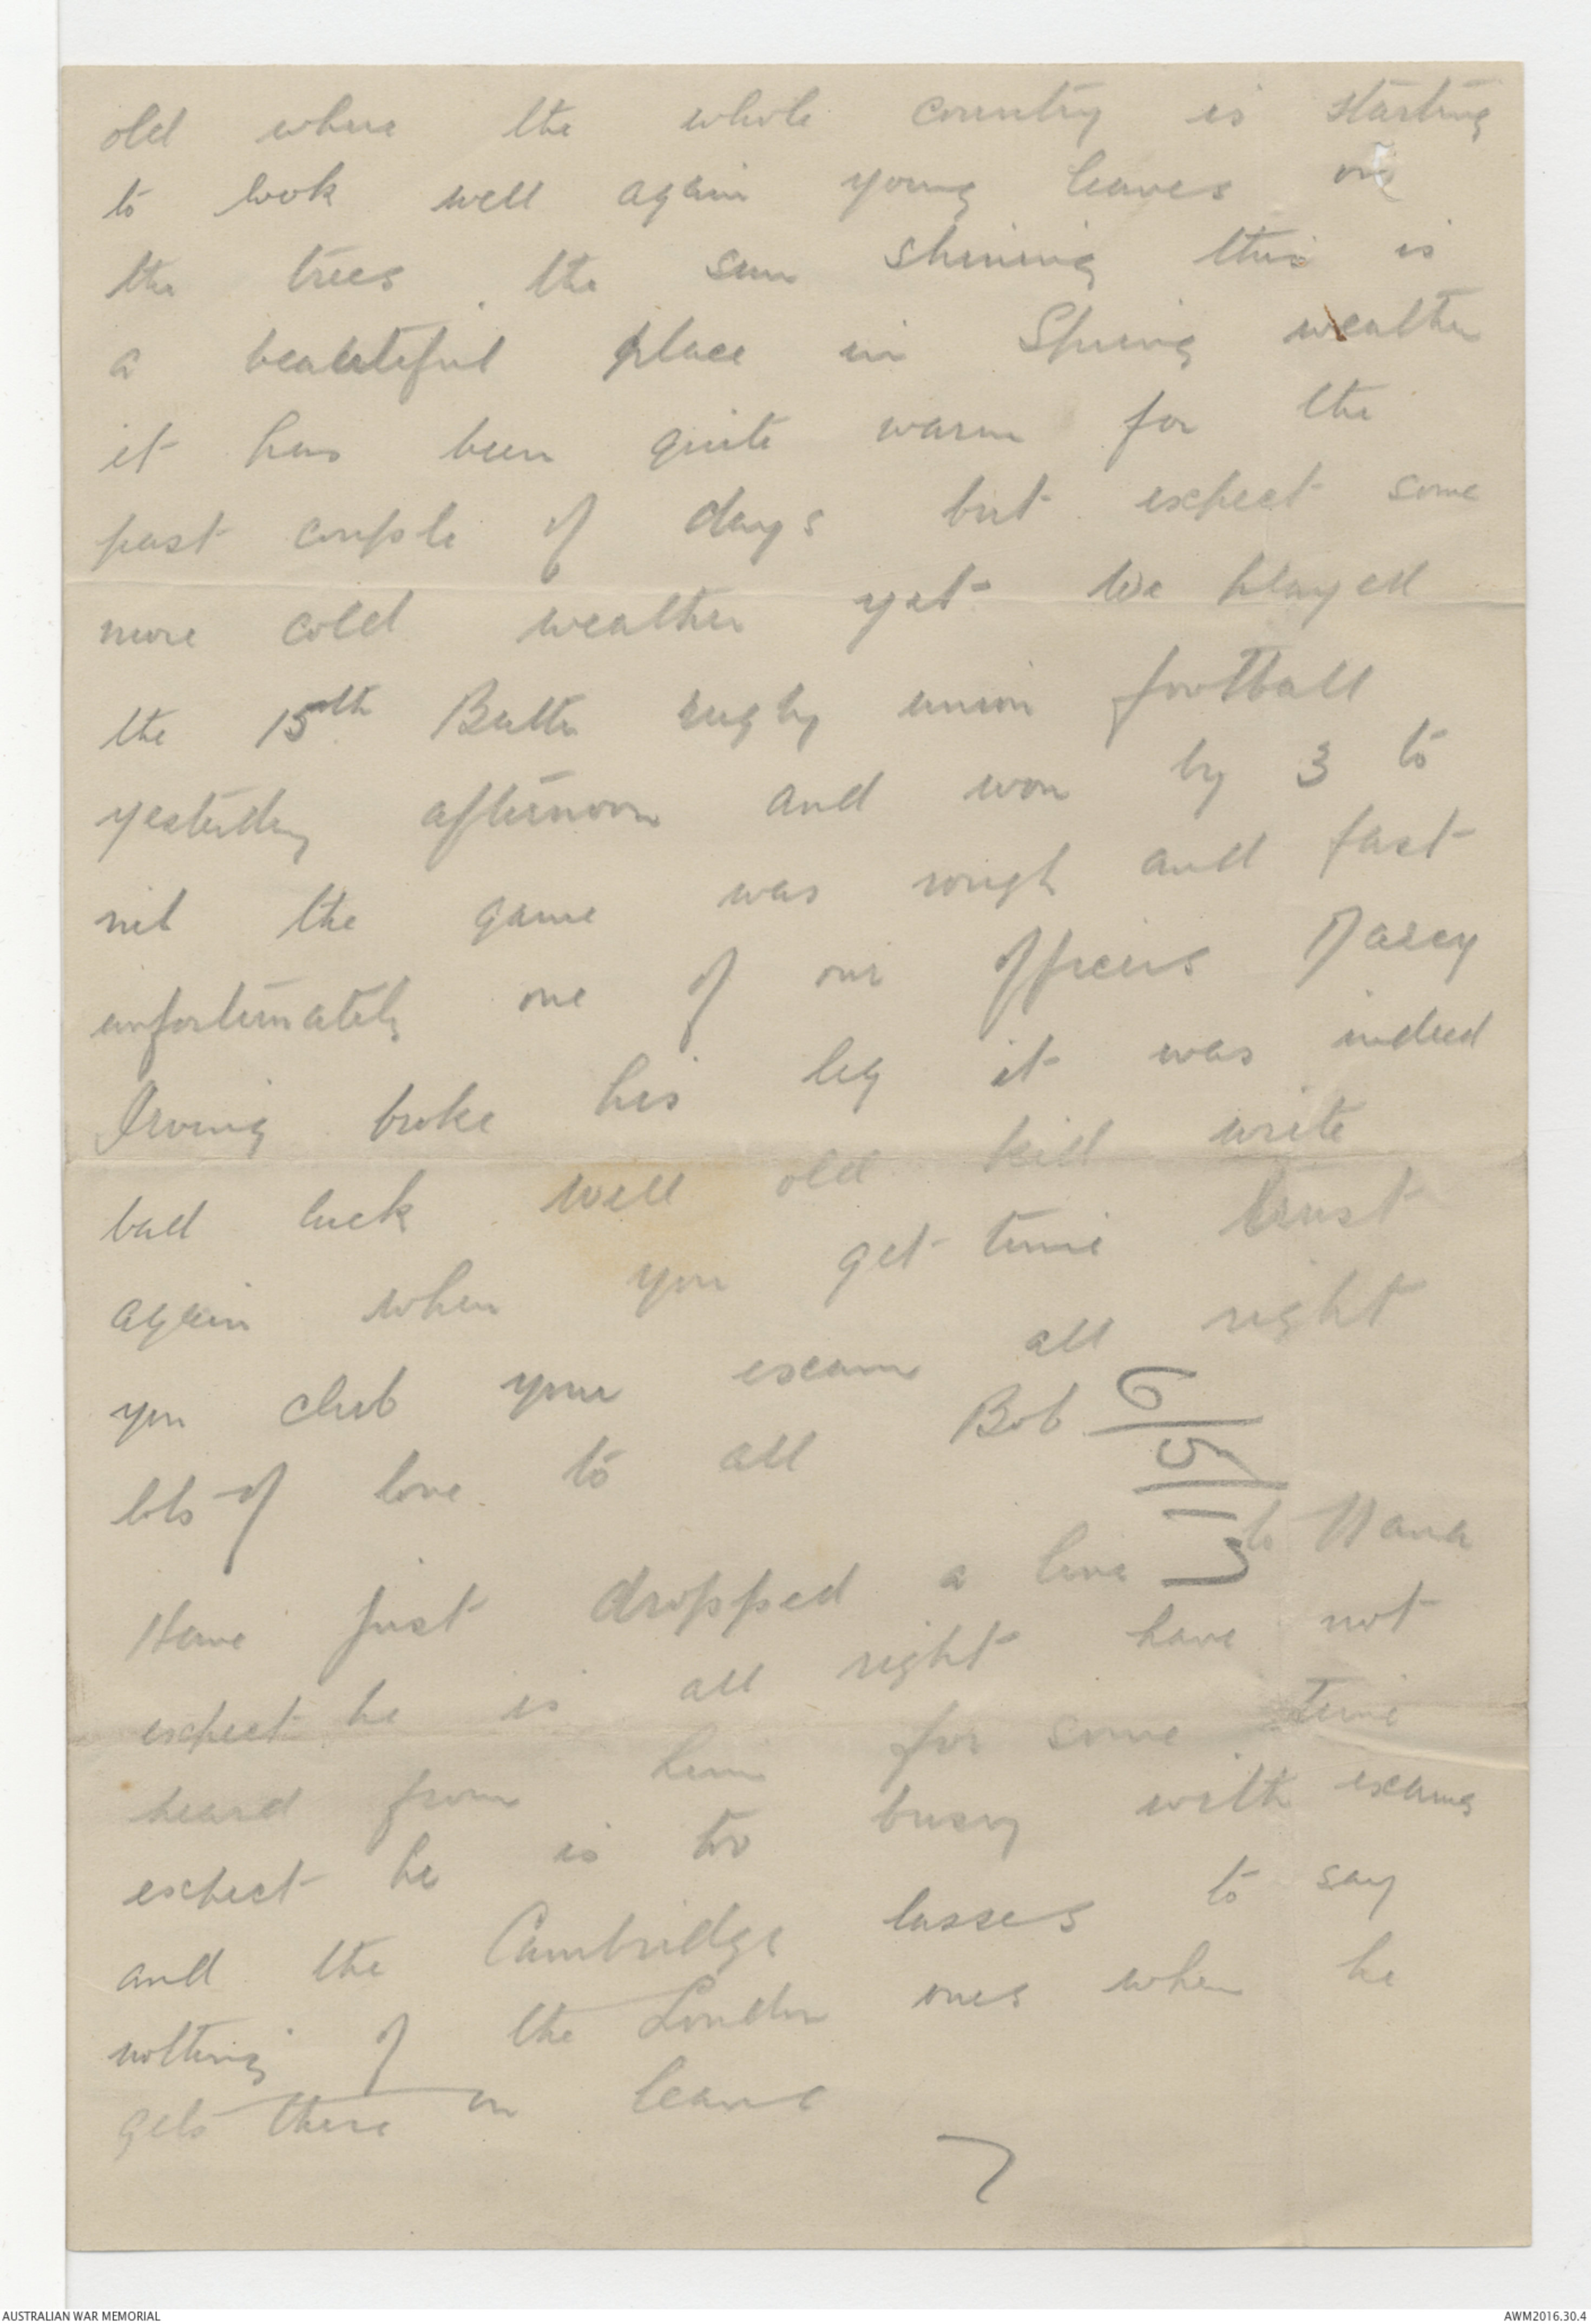 old where the whole country is starting
to look well again young leaves on
the trees the sun shining this is
a beautiful place in Spring weather
it has been quite warm for the
past couple of days but expect some
more cold weather yet We played
the 15th Battn rugby union football
yesterday afternoon and won by 3 to
nil the game was rough and fast
unfortunately one of our officers Darcy
Irving broke his leg it was indeed
bad luck well old kid write
again when you get time trust
you club your exam all right
lots of love to all Bob
6/5/17
Have just dropped a line to Nana
expect he is all right have not
heard from him for some time
expect he is to busy with exams
and the Cambridge lasses to say
nothing of the London ones when he
gets there on leave
7
AUSTRALIAN WAR MEMORIAL
AWM2016.30.4